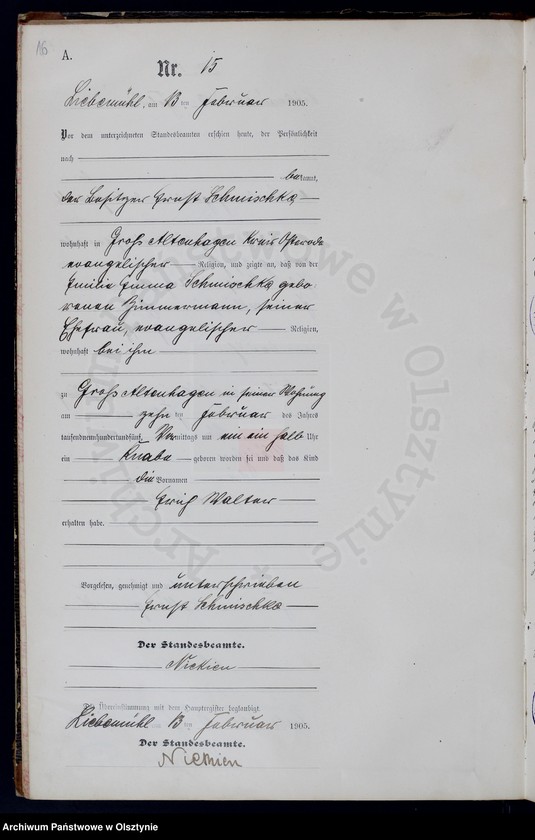 16
A.
Nr. 15
Liebemühl, am 13 ten Februar 1905.
Vor dem unterzeichneten Standesbeamten erschien heute, der Persönlichkeit
nach
bekannt,
der Besitzer Ernst Schmischke
wohnhaft in Groß Altenhagen Kreis Osterode
evangelischer Religion, und zeigte an, daß von der
Emilie Emma Schmischke gebo
renen Zimmermann, seiner
Ehefrau, evangelischer Religion,
wohnhaft bei ihm
zu Groß Altenhagen in seiner Wohnung
am zehn ten Februar des Jahres
tausendneunhundertundfünf, Vormittags um ein ein halb Uhr
ein Knabe geboren worden sei und daß das Kind
die Vornamen
Erich Walter
erhalten habe.
Vorgelesen, genehmigt und unterschrieben
Ernst Schmischke
Der Standesbeamte.
Nickien
Die Übereinstimmung mit dem Hauptregister beglaubigt.
Liebemühl 13 ten Februar 1905.
Der Standesbeamte.
Nickien
Archiwum Państwowe w Olsztynie
Archiwum Państwowe w Olsztynie